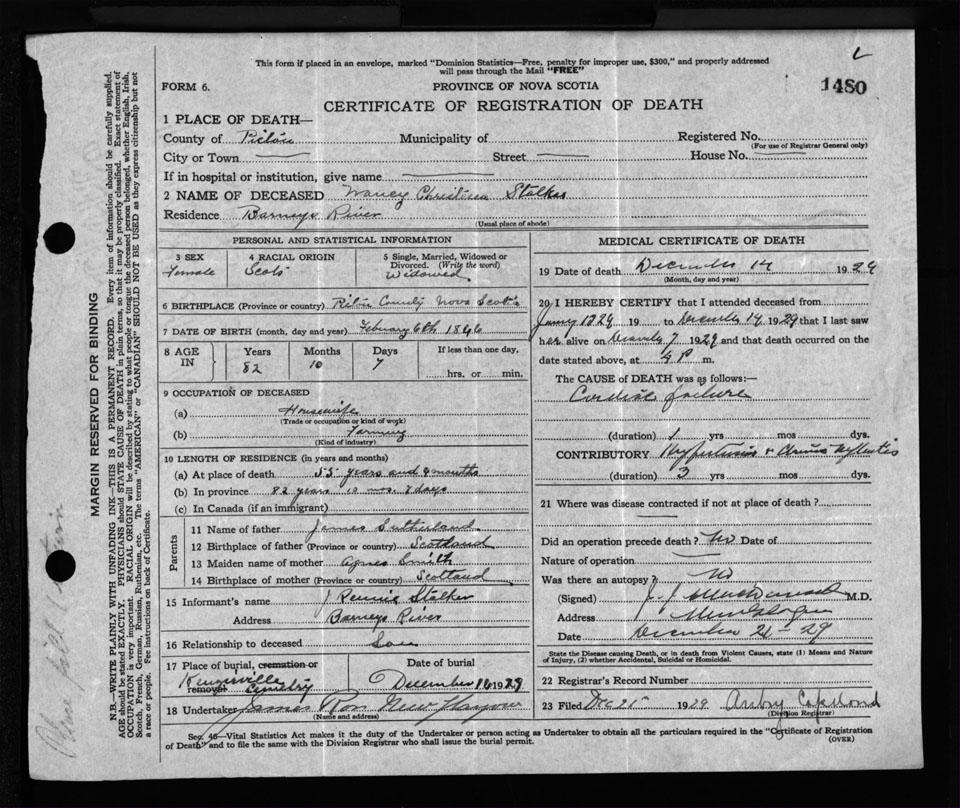 This form if placed in an envelope, marked "Dominion Statistics—Free, penalty for improper use, $300," and properly addressed
will pass through the Mail "FREE"
FORM 6.
PROVINCE OF NOVA SCOTIA
1480
CERTIFICATE OF REGISTRATION OF DEATH
1 PLACE OF DEATH—
County of Pictou Municipality of Registered No.
(For use of Registrar General only)
City or Town Street House No.
If in hospital or institution, give name
2 NAME OF DECEASED Nancy Christina Stalker
Residence Barneys River
(Usual place of abode)
PERSONAL AND STATISTICAL INFORMATION
3 SEX Female
4 RACIAL ORIGIN Scots
5 Single, Married, Widowed or
Divorced. (Write the word)
Widowed
6 BIRTHPLACE (Province or country) Pictou County Nova Scotia
7 DATE OF BIRTH (month, day and year) February 6th 1846
8 AGE IN Years 82 Months 10 Days 7 If less than one day,
hrs. or min.
9 OCCUPATION OF DECEASED
(a) Housewife
(Trade or occupation or kind of work)
(b) Farming
(Kind of industry)
10 LENGTH OF RESIDENCE (in years and months)
(a) At place of death 55 years and 9 months
(b) In province 82 years 10 mos. 7 days
(c) In Canada (if an immigrant)
Parents
11 Name of father James Sutherland
12 Birthplace of father (Province or country) Scotland
13 Maiden name of mother Agnes Smith
14 Birthplace of mother (Province or country) Scotland
15 Informant's name J Rennie Stalker
Address Barneys River
16 Relationship to deceased Son
17 Place of burial, cremation or
removal Cemetery
Date of burial
December 16 1929
18 Undertaker James Ross New Glasgow
(Name and address)
MEDICAL CERTIFICATE OF DEATH
19 Date of death December 14 1929
(Month, day and year)
20 I HEREBY CERTIFY that I attended deceased from
19 to December 14 1929 that I last saw
her alive on 7 1929 and that death occurred on the
date stated above, at 4 P m.
The CAUSE OF DEATH was as follows:—
Cardiac failure
(duration) 1 yrs mos dys.
CONTRIBUTORY Hypertension &
(duration) 3 yrs mos dys.
21 Where was disease contracted if not at place of death?
Did an operation precede death? No Date of
Nature of operation
Was there an autopsy? No
(Signed) M.D.
Address
Date December 21-29
State the Disease causing Death, or in death from Violent Causes, state (1) Means and Nature
of Injury, (2) whether Accidental, Suicidal or Homicidal.
22 Registrar's Record Number
23 Filed Dec 21 1929
(Division Registrar)
Sec. 46—Vital Statistics Act makes it the duty of the Undertaker or person acting as Undertaker to obtain all the particulars required in the "Certificate of Registration
of Death" and to file the same with the Division Registrar who shall issue the burial permit.
(OVER)
MARGIN RESERVED FOR BINDING
N.B.—WRITE PLAINLY WITH UNFADING INK—THIS IS A PERMANENT RECORD. Every item of information should be carefully supplied.
AGE should be stated EXACTLY. PHYSICIANS should STATE CAUSE OF DEATH in plain terms, so that it may be properly classified. Exact statement of
OCCUPATION is very important. RACIAL ORIGIN will be described by stating to what people or tongue the deceased person belonged, whether English, Irish,
Scotch, French, German, Russian, Ruthenian, etc. The terms "AMERICAN" or "CANADIAN" SHOULD NOT BE USED as they express citizenship but not
a race or people. Fee instructions on back of Certificate.